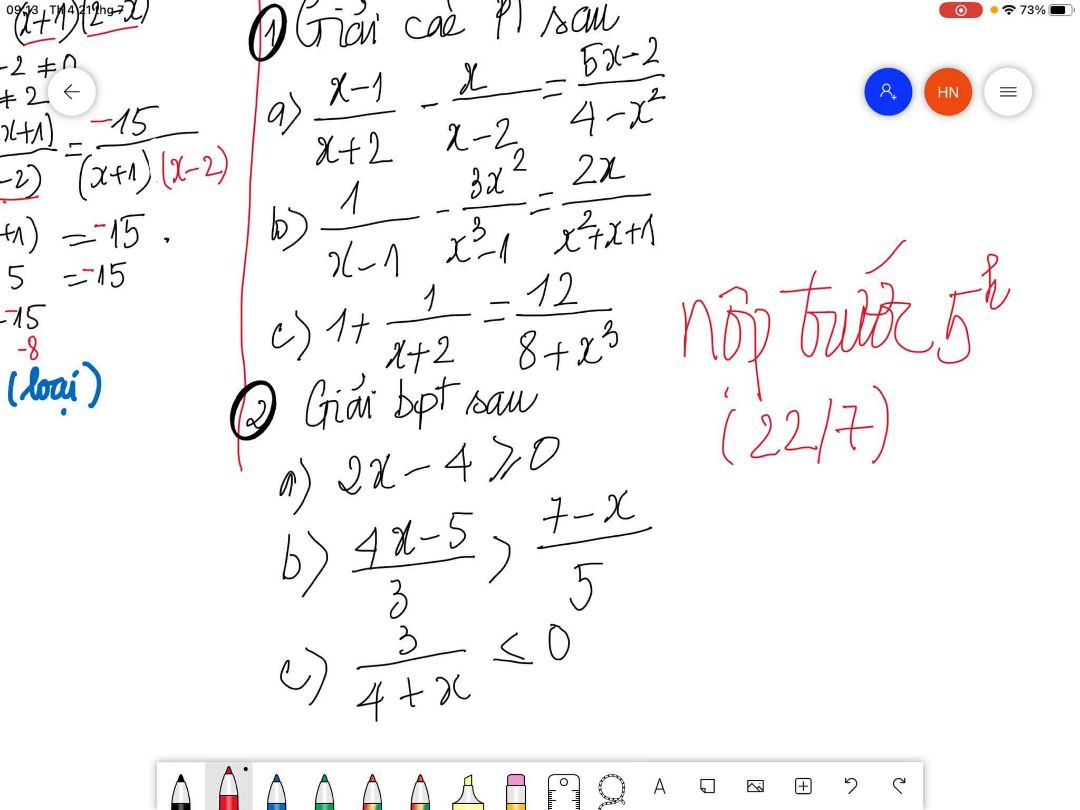 09:13 Th 4 21 thg 7
73%
HN
(x+1)(2-x)
-2 ≠ 0
≠ 2
x+1) / -2) = -15 / (x+1).(x-2)
+1) = -15.
5 = -15
-15
-8
(loại)
① Giải các PT sau
a) (x-1)/(x+2) - x/(x-2) = (5x-2)/(4-x²)
b) 1/(x-1) - 3x²/(x³-1) = 2x/(x²+x+1)
c) 1 + 1/(x+2) = 12/(8+x³)
② Giải bpt sau
a) 2x-4 ≥ 0
b) (4x-5)/3 > (7-x)/5
c) 3/(4+x) ≤ 0
nộp trước 5h
(22/7)
A